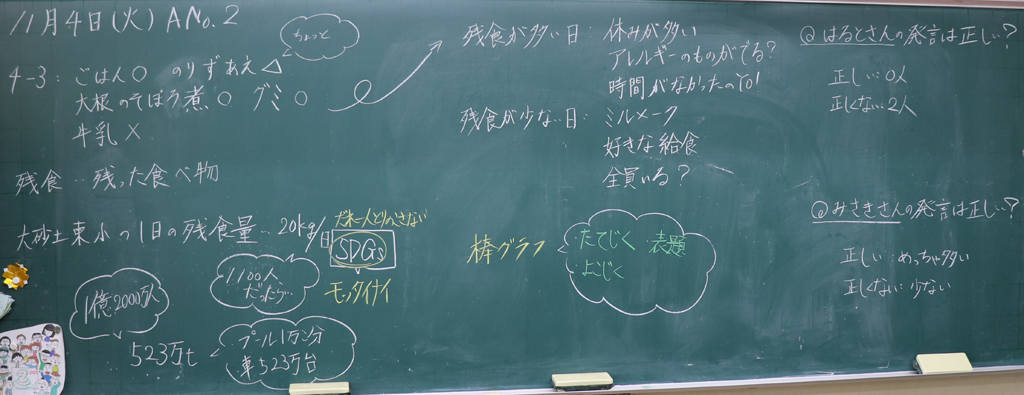 11月4日(火) A No.2
ちょっと
4-3：ごはん○ のりずあえ△
大根のそぼろ煮○ グミ○
牛乳×
残食…残った食べ物
大砂土東小の1日の残食量…20kg/日
だれ一人とりのこさない
SDGs
モッタイナイ
1億2000万人
1100人
だったら…
523万t
プール1万こ分
車523万台
残食が多い日：休みが多い
アレルギーのものがでる?
時間がなかったのYO!
残食が少ない日：ミルメーク
好きな給食
全員いる?
棒グラフ
たてじく 表題
よこじく
@はるとさんの発言は正しい?
正しい：0人
正しくない：2人
@みさきさんの発言は正しい?
正しい：めっちゃ多い
正しくない：少ない